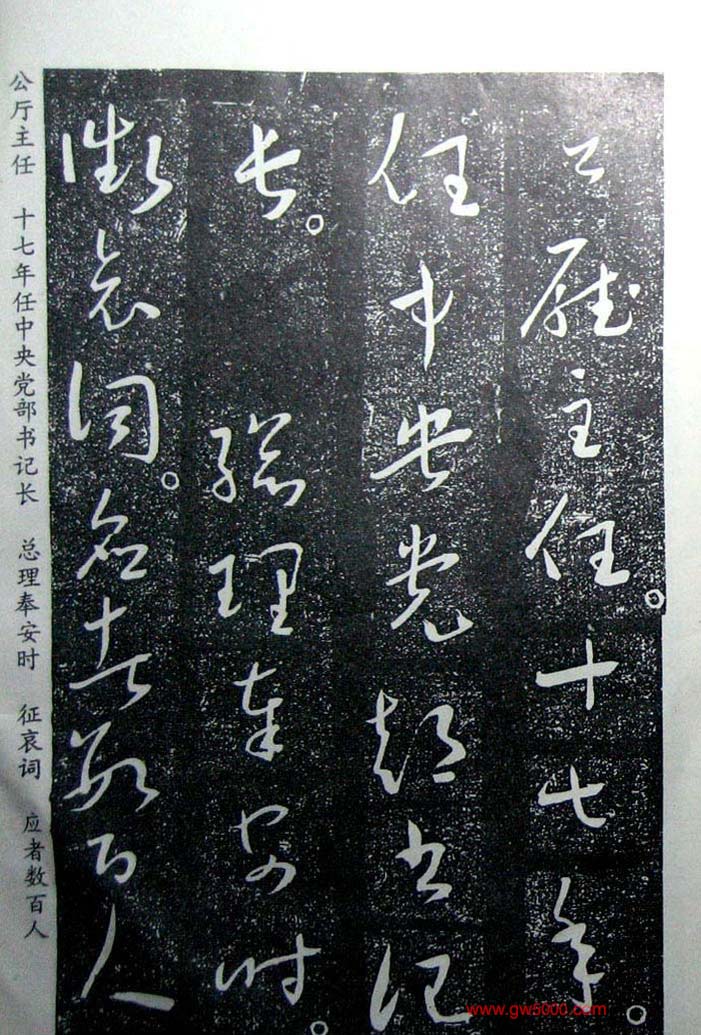 公廳主任。十七年。
任中央党部书记
长。 總理奉安时。
徵哀词。应者数百人
公厅主任 十七年任中央党部书记长 总理奉安时 征哀词 应者数百人
www.gw5000.com